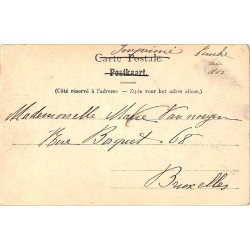 Imprimé
Carte Postale
Postkaart.
(Côté réservé à l'adresse — Zijde voor het adres alleen.)
Mademoiselle Marie Van
Rue 68
Bruxelles